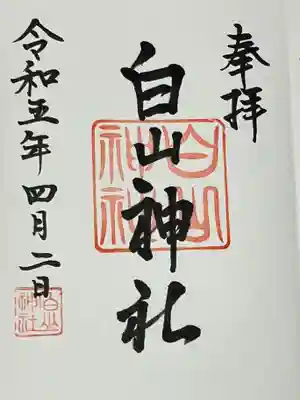 奉拝
白山神社
白山神社
令和五年四月二日
白山神社